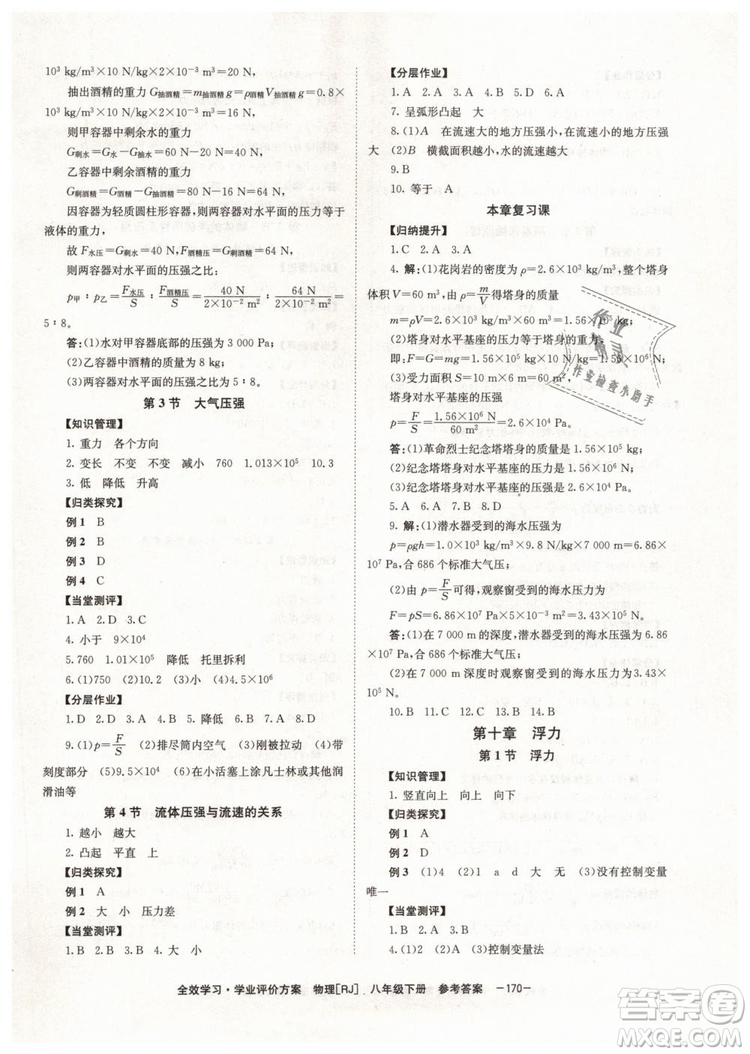 10³ kg/m³×10 N/kg×2×10⁻³ m³=20 N
抽出酒精的重力 G抽酒精=m抽酒精g=ρ酒精V抽酒精g=0.8×
10³ kg/m³×10 N/kg×2×10⁻³ m³=16 N,
则甲容器中剩余水的重力
G剩水=G水-G抽水=60 N-20 N=40 N
乙容器中剩余酒精的重力
G剩酒精=G酒精-G抽酒精=80 N-16 N=64 N,
因容器为轻质圆柱形容器,则两容器对水平面的压力等于
液体的重力,
故 F水压=G剩水=40 N,F酒精压=G剩酒精=64 N
则两容器对水平面的压强之比
p甲∶p乙=F水压/S甲∶F酒精压/S乙=40 N/2×10⁻² m²∶64 N/2×10⁻² m²=
5∶8。
答:(1)水对甲容器底部的压强为 3 000 Pa;
(2)乙容器中酒精的质量为 8 kg;
(3)两容器对水平面的压强之比为 5∶8。
第 3 节 大气压强
【知识管理】
1. 重力 各个方向
2. 变长 不变 不变 减小 760 1.013×10⁵ 10.3
3. 低 降低 升高
【归类探究】
例 1 B
例 2 B
例 3 D
例 4 C
【当堂测评】
1. A 2. D 3. C
4. 小于 9×10⁴
5. 760 1.01×10⁵ 托里拆利
6. (1)750 (2)10.2 (3)小 (4)6.5×10⁴
【分层作业】
1. D 2. D 3. B 4. A 5. 降低 6. B 7. D 8. A
9. (1)p=F/S (2)排尽筒内空气 (3)刚被拉动 (4)带
刻度部分 (5)9.5×10⁴ (6)在小活塞上涂凡士林(或其他润
滑油等)
第 4 节 流体压强与流速的关系
1. 越小 越大
2. 凸起 平直 上
【归类探究】
例 1 A
例 2 大 小 压力差
【当堂测评】
1. B 2. A 3. D 4. B
【分层作业】
1. A 2. A 3. C 4. B 5. D 6. D
7. 呈弧形凸起 大
8. (1)A 在流速大的地方压强小,在流速小的地方压强
大 (2)B 横截面积越小,水的流速越大
9. B
10. 等于 A
本章复习课
【归纳提升】
1. C 2. A 3. D
4. 解:(1)花岗岩的密度 ρ=2.6×10³ kg/m³,整个塔身
体积 V=60 m³,由 ρ=m/V可得塔身的质量
m=ρV=2.6×10³ kg/m³×60 m³=1.56×10⁵ kg;
(2)塔身对水平基座的压力等于塔身的重力,
即:F=G=mg=1.56×10⁵ kg×10 N/kg=1.56×10⁶ N;
塔身对水平基座的压强
p=F/S=1.56×10⁶ N/60 m²=2.6×10⁴ Pa。
答:(1)革命烈士纪念塔塔身的质量是 1.56×10⁵ kg;
(2)纪念塔塔身对水平基座的压力是 1.56×10⁶ N;
(2)纪念塔塔身对水平基座的压强是 2.6×10⁴ Pa。
5. A 6. A 7. D 8. D
9. 解:(1)潜水器受到的海水压强为
p=ρgh=1.0×10³ kg/m³×9.8 N/kg×7 000 m=6.86×
10⁷ Pa,合 686 个标准大气压;
(2)由 p=F/S可得,观察窗受到的海水压力为
F=pS=6.86×10⁷ Pa×0.005 m²=3.43×10⁵ N。
答:(1)在 7 000 m深度,潜水器受到的海水压强为 6.86
×10⁷ Pa,合 686 个标准大气压;
(2)在 7 000 m深度时观察窗受到的海水压力是 3.43×
10⁵ N。
10. B 11. C 12. B 13. B 14. B
第十章 浮力
第 1 节 浮力
【知识管理】
1. 竖直向上 向下 向上 向上
【归类探究】
例 1 A
例 2 D
例 3 (1)4 (2)1 a d 大 无 (3)没有控制变量
唯一
【当堂测评】
4. (1)2 (2)= (3)控制变量法
作业
作业检查小助手
全效学习·学业评价方案 物理[RJ] 八年级下册 参考答案 —170—